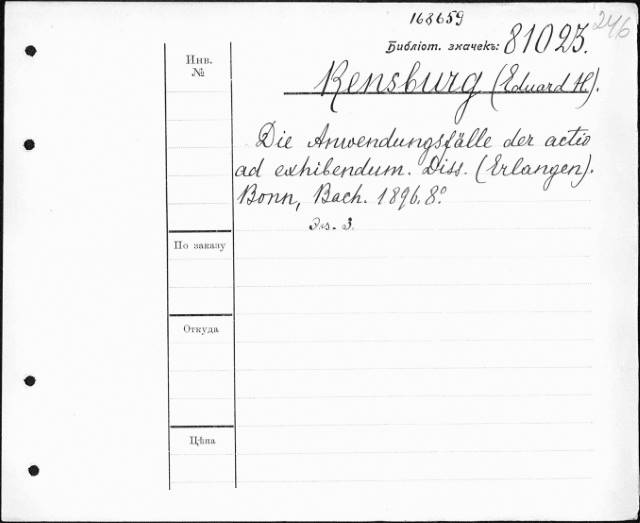 168659
246
Библіот. значекъ: 81023.
Инв.
№
Rensburg (Eduard H.).
Die Anwendungsfälle der actio
ad exhibendum. Diss. (Erlangen).
Bonn, Bach. 1896. 8º
По заказу
Откуда
Цѣна